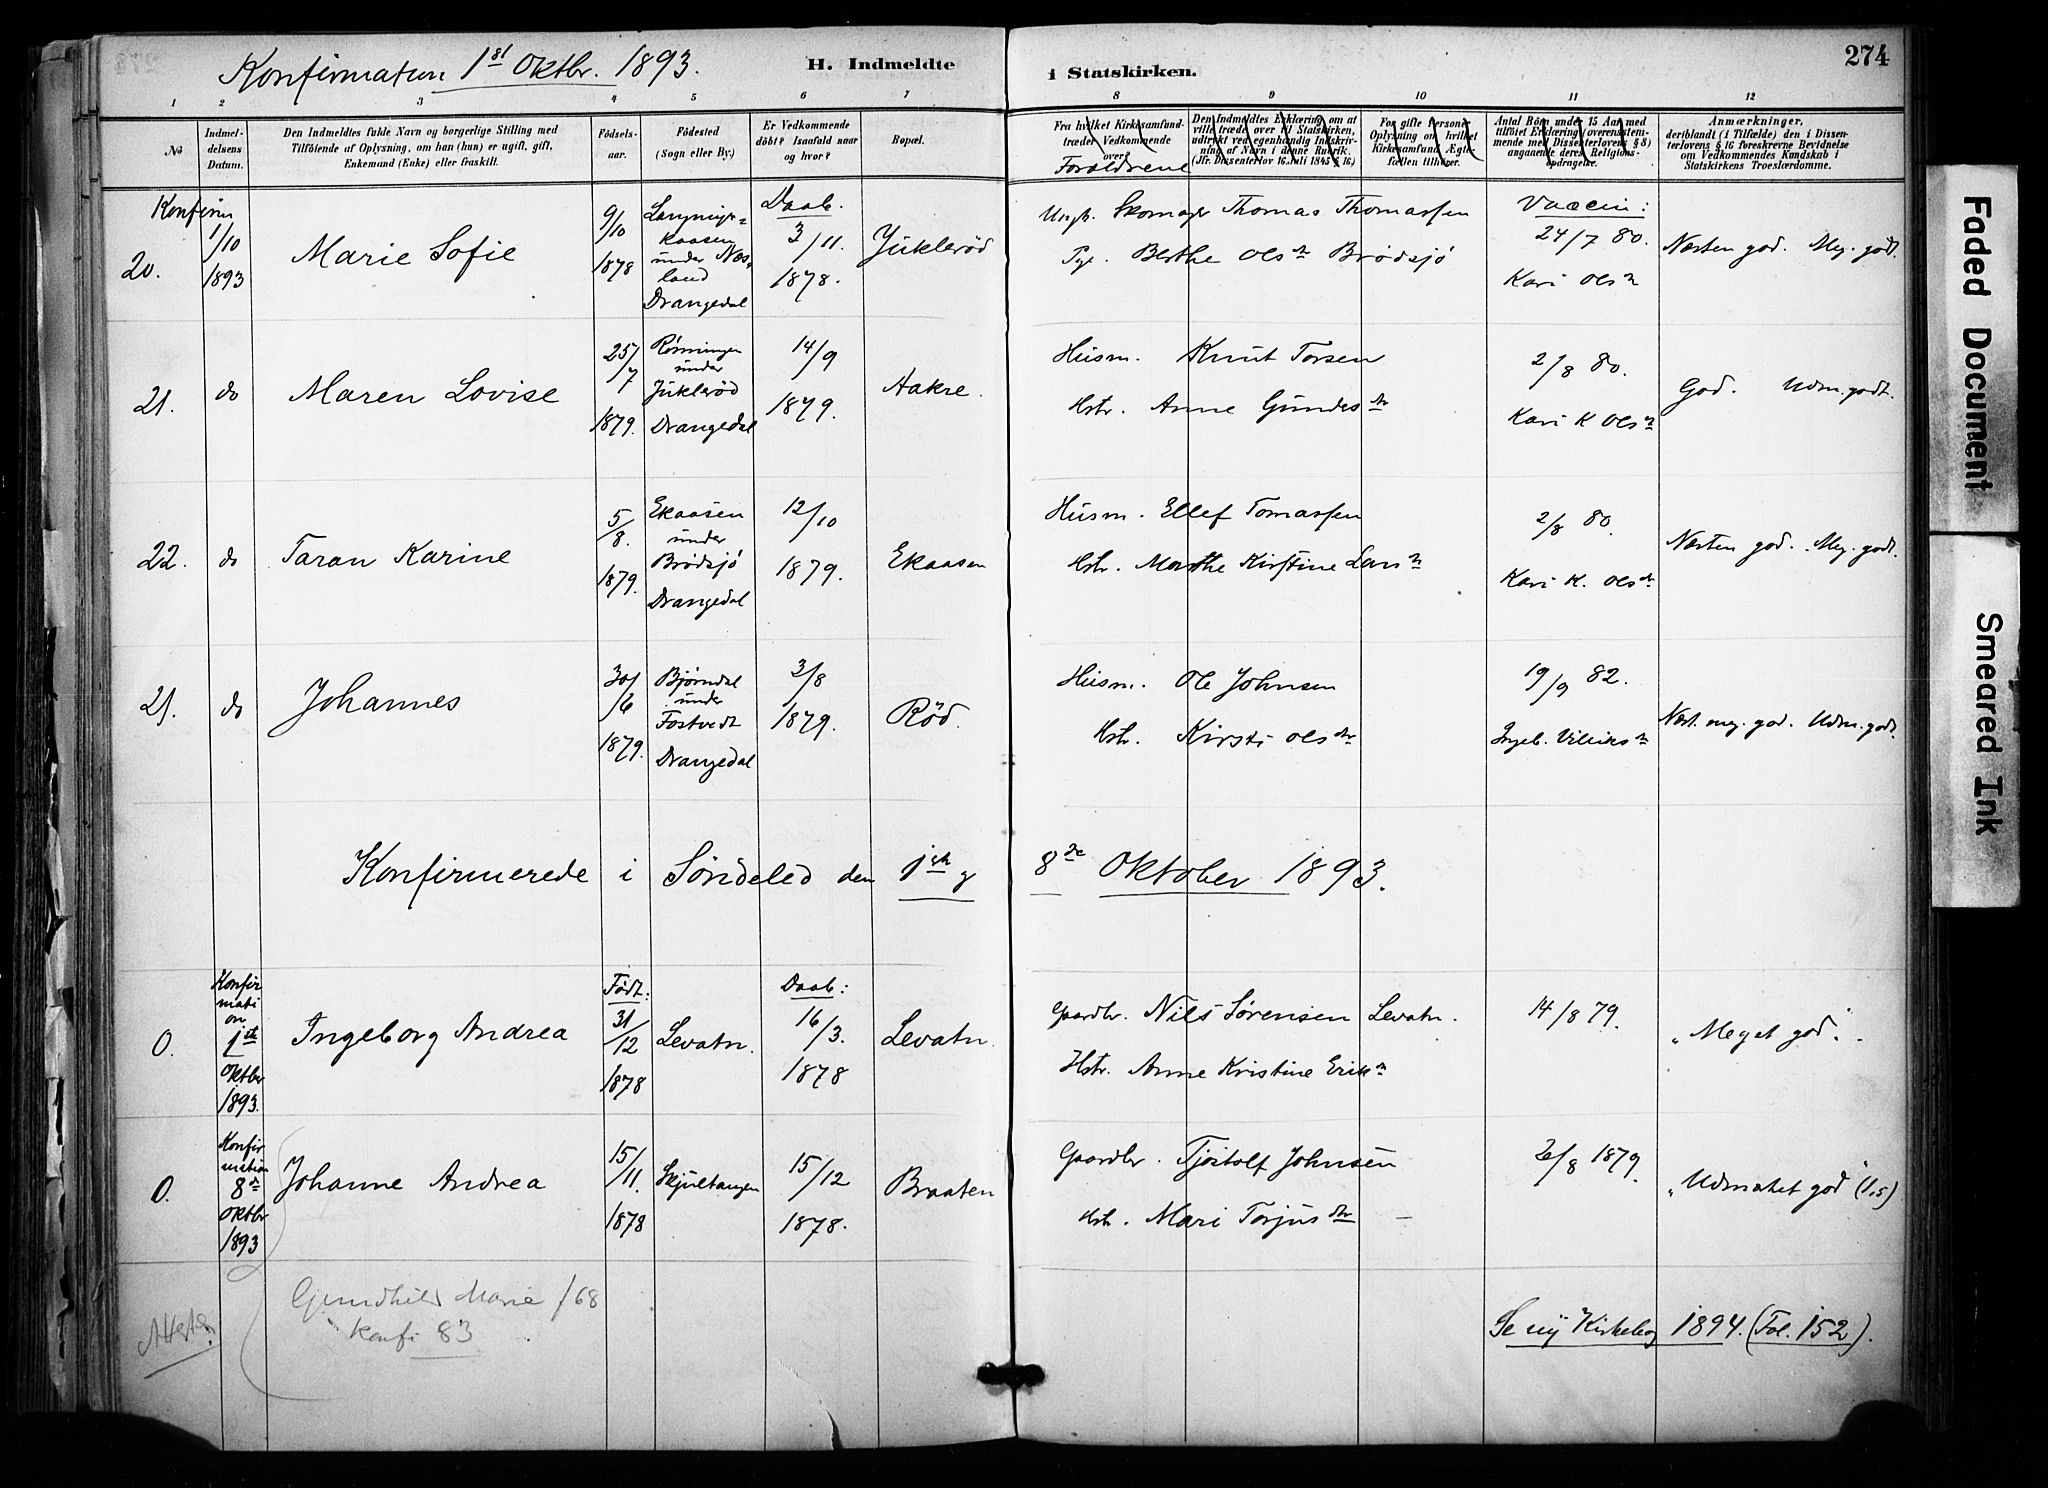 Konfirmation 1st Oktbr. 1893.
H. Indmeldte
i Statskirken.
274
1 2 3 4 5 6 7 8 9 10 11 12
No
Indmel-
delsens
Datum.
Den Indmeldtes fulde Navn og borgerlige Stilling med
Tilföiende af Oplysning, om han (hun) er ugift, gift,
Enkemand (Enke) eller fraskilt.
Födsels-
aar.
Födested
(Sogn eller By.)
Er Vedkommende
döbt? Isaafald naar
og hvor?
Bopæl.
Fra hvilket Kirkesamfund
træder Vedkommende
over?
Forældrene
Den Indmeldtes Erklæring om at
ville træde over til Statskirken,
udtrykt ved egenhændig Indskriv-
ning af Navn i denne Rubrik.
(Jfr. Dissenterlov 16 Juli 1845 § 16)
For gifte Personer
Oplysning om hvilket
Kirkesamfund Ægte-
fællen tilhører.
Antal Börn under 15 Aar med
tilföiet Erklæring (overensstem-
mende med Dissenterlovens § 8)
angaaende deres Religions-
opdragelse.
Anmærkninger,
deriblandt (i Tilfælde) den i Dissen-
terlovens § 16 foreskrevne Bevidnelse
om Vedkommendes Kundskab i
Statskirkens Troeslærdomme.
Konfirm
20.
1/10
1893
Marie Sofie
9/10
1878
under Næs-
land
Drangedal
Daab.
3/11.
1878.
Juklerød
Skomager Thomas Thomassen
Berthe Olsdr Brødsjø
Vaccin:
24/7 80.
Kari Olsdr
Næsten god. Meg. godt.
21. do
Maren Lovise
25/7
1879.
Rønningen
under
Juklerød
Drangedal
14/9
1879.
Aakre.
Husm. Knut Torsen
Hstr. Anne Gundesdr
2/8 80.
Kari K Olsdr
God. Udm. godt.
22. do
Taran Karine
5/8.
1879.
Ekaasen
under
Brødsjø
Drangedal
12/10
1879.
Ekaasen
Husm. Ellef Tomassen
Hstr. Marthe Kirstine Larsdr
2/8 80.
Kari K. Olsdr
Næsten god. Meg. godt.
21. do
Johannes
30/6
1879.
Bjørndal
under
Fostvedt
Drangedal
3/8
1879.
Rød.
Husm. Ole Johnsen
Hstr. Kirsti Olsdtr
19/9 82.
Næst. meg. god. Udm. godt.
Konfirmerede i Søndeled den 1ste og 8de Oktober 1893.
0.
Konfir
mati
on
1ste
Oktbr
1893.
Ingeborg Andrea
Født:
31/12
1878
Levatn.
Daab:
16/3.
1878
Levatn.
Gaardbr. Nils Sørensen Levatn.
Hstr. Anne Kristine Eriksdr
14/8 79.
"Meget god".
0.
Konfir
mation
8de
Oktbr
1893
Johanne Andrea
15/11.
1878
15/12
1878.
Braaten
Gaardbr. Tjøstolf Johnsen
Hstr. Mari Torjusdtr –
1879.
"Udmærket god" (1,5)
Attester
Gundhild Marie /68
konfi 83
Se ny Kirkebog 1894. (Fol. 152).
Faded Document
Smeared Ink